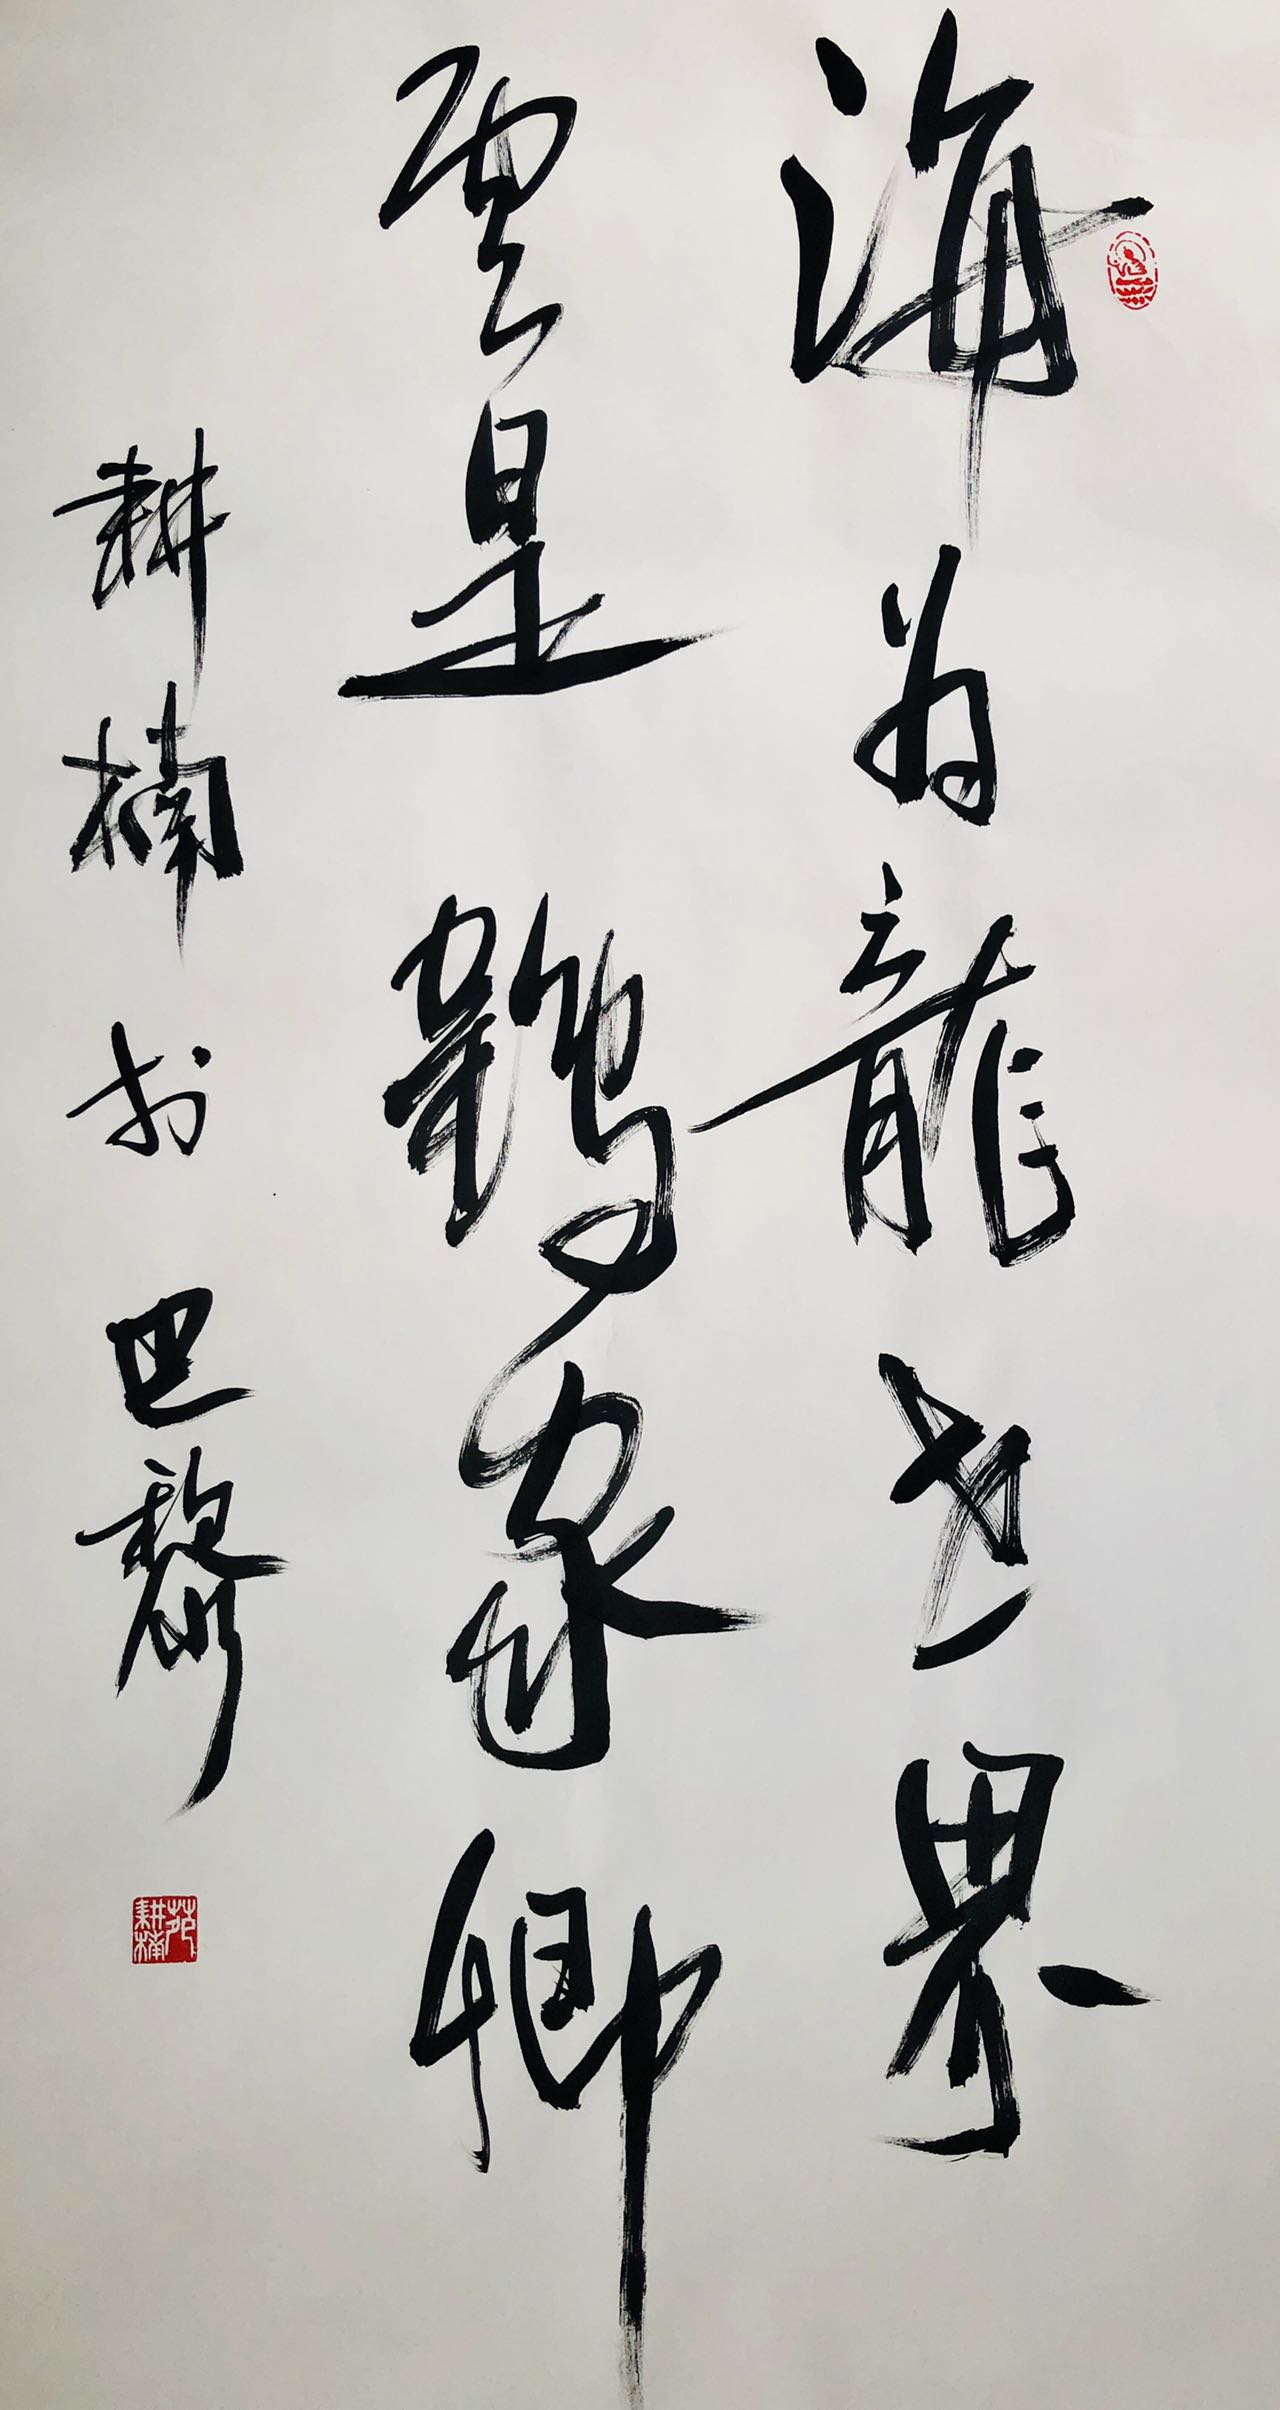 海為龍世界
雲是鶴家鄉
耕楠书巴黎
苑耕楠